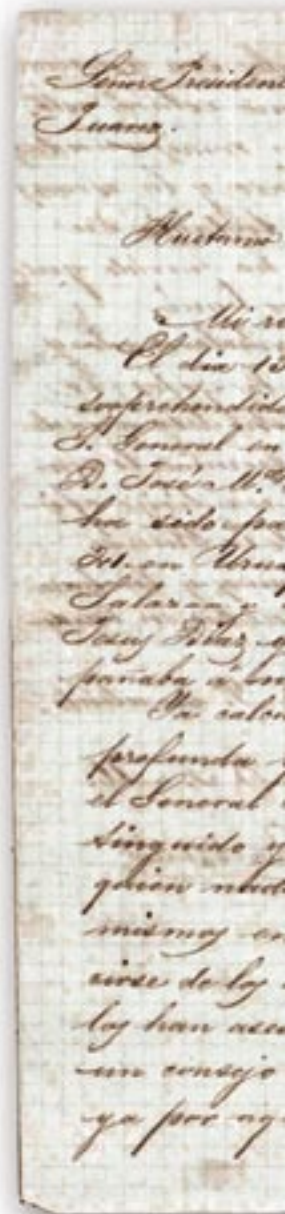 Señor Presidente
Juarez.
Huetamo
Mi re
El dia 13
sorprehendido
S. General en
D. José M.ª
ha sido pa
21. en Urua
Salazar y
Jesus Diaz q
pañaba á
Ya sabrá
profunda
el General
tinguido y
quien nadie
mismos en
rirse de los
los han ases
un consejo
ya por aq